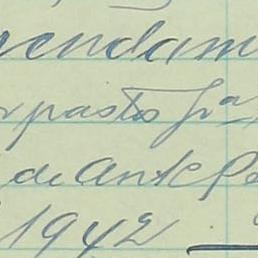 rendam
pasto pª
de Ante Pa
1942